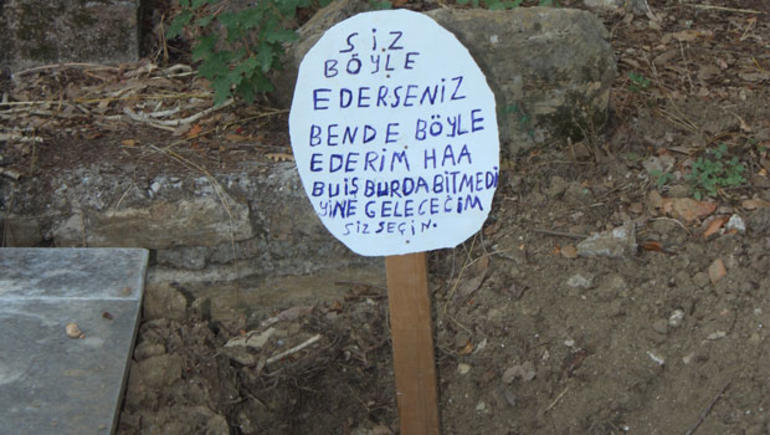 SİZ
BÖYLE
EDERSENİZ
BENDE BÖYLE
EDERİM HAA
BU İŞ BURDA BİTMEDİ
YİNE GELECEĞİM
SİZ SEÇİN.